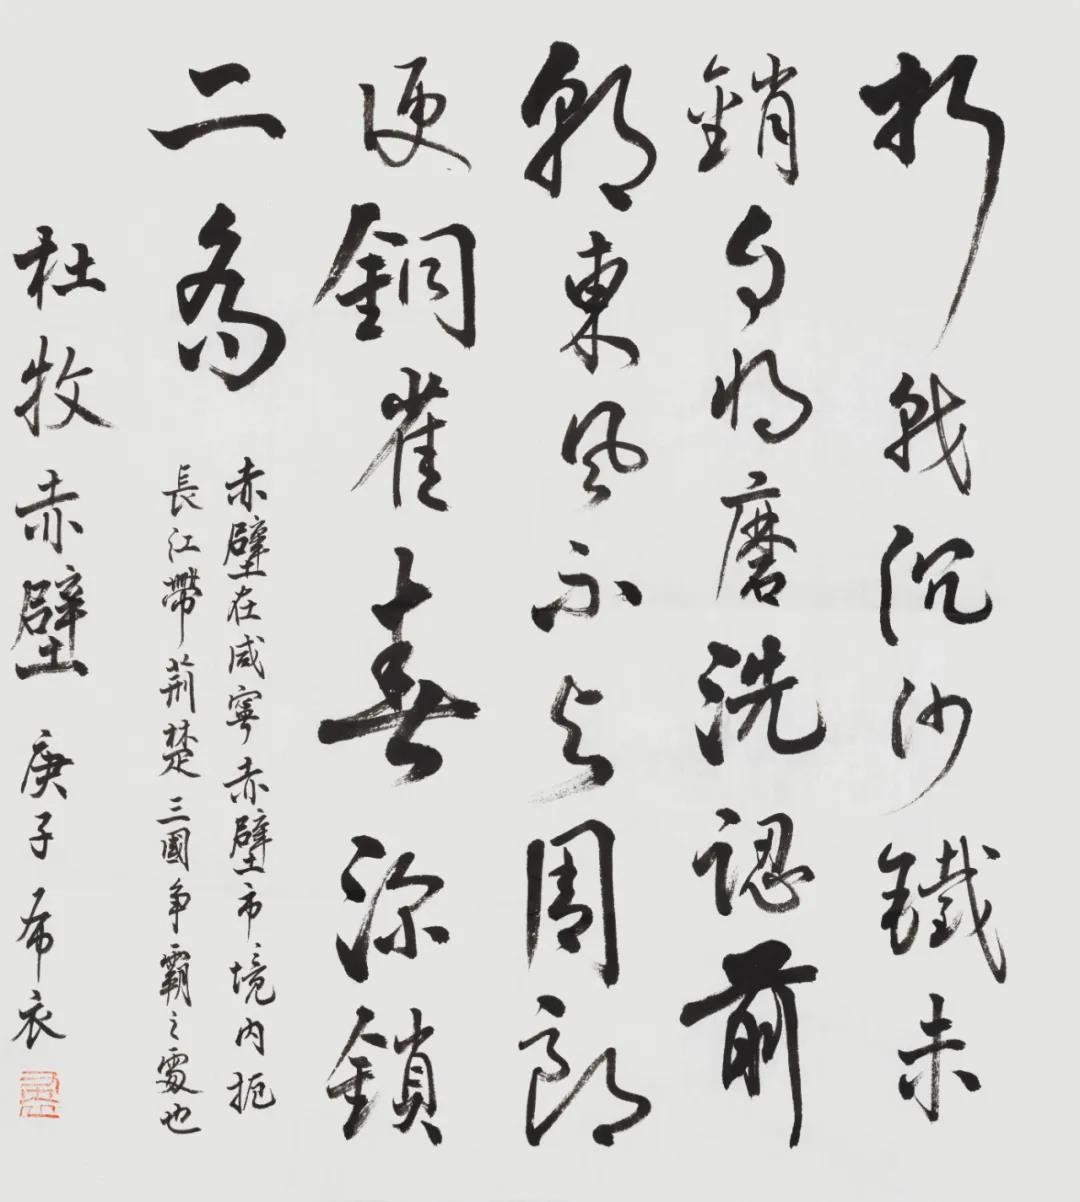 折戟沉沙鐵未
銷自将磨洗認前
朝東風不与周郎
便銅雀春深鎖
二喬
赤壁在咸寧赤壁市境内扼
長江帶荊楚三國争霸之處也
杜牧赤壁 庚子布衣